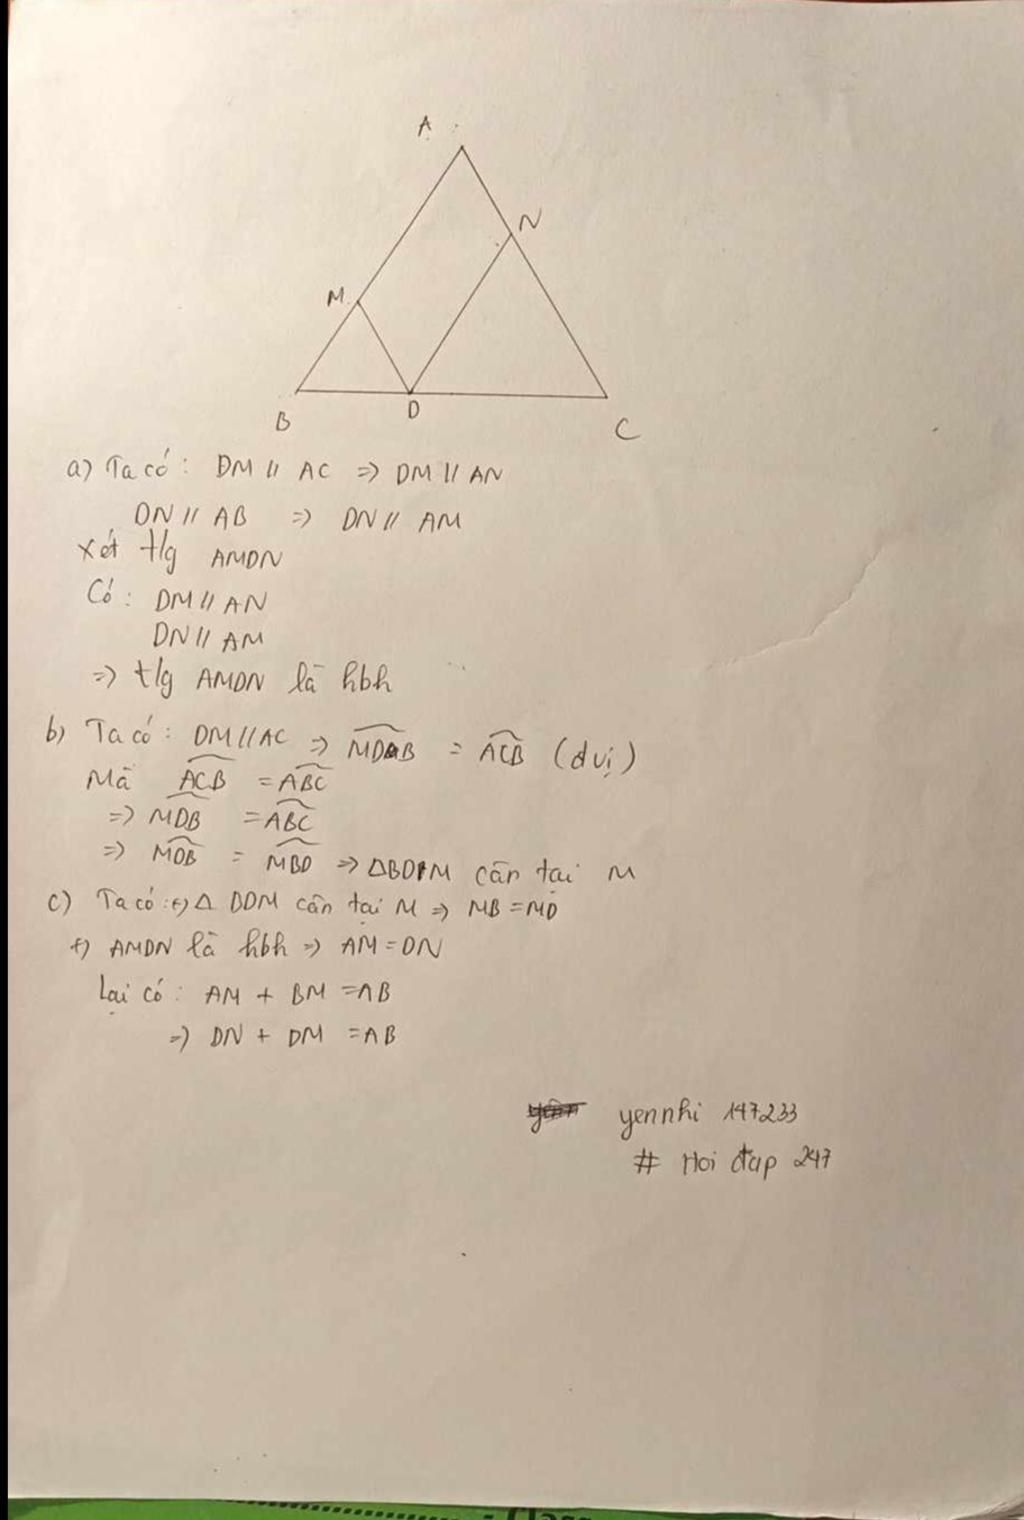 A
N
M
B
D
C
a) Ta có: DM // AC => DM // AN
DN // AB => DN // AM
Xét t/g AMDN
Có: DM // AN
DN // AM
=> t/g AMDN là hbh
b) Ta có: DM // AC => MDB = ACB (đvị)
Mà ACB = ABC
=> MDB = ABC
=> MDB = MBD => ΔBDM cân tại M
c) Ta có: +) Δ BDM cân tại M => MB = MD
+) AMDN là hbh => AM = DN
Lại có: AM + BM = AB
=> DN + DM = AB
yennhi 147233
# Hoi đap 247